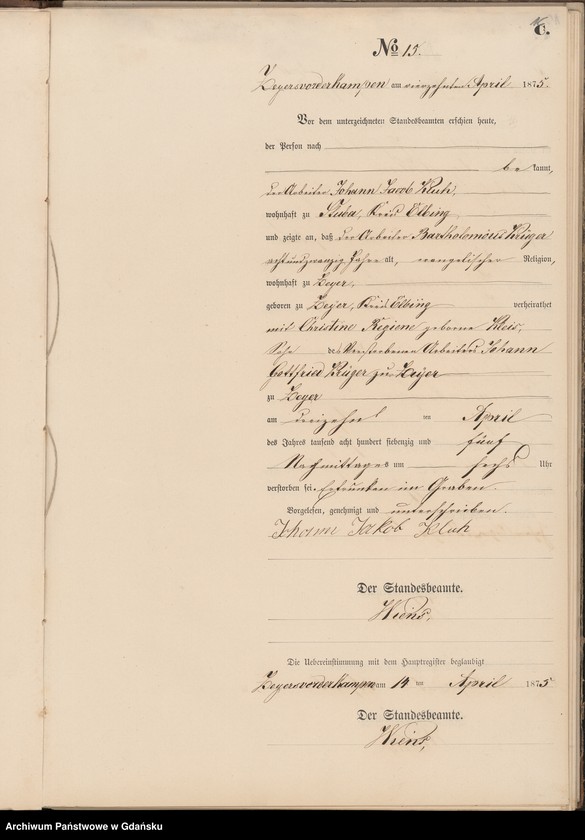 C.
No 15.
Zeyersvorderkampen am vierzehnten April 1875.
Vor dem unterzeichneten Standesbeamten erschien heute,
der Person nach
be kannt,
der Arbeiter Johann Jacob Kluh,
wohnhaft zu Stuba, Kreis Elbing
und zeigte an, daß der Arbeiter Bartholomäus Krüger
achtundzwanzig Jahre alt, evangelischer Religion,
wohnhaft zu Zeyer,
geboren zu Zeyer, Kreis Elbing verheirathet
mit Christine Regiene geborene Kleis,
Sohn des Verstorbenen Arbeiters Johann
Gottfried Krüger zu Zeyer
zu Zeyer
am dreizehn ten April
des Jahres tausend acht hundert siebenzig und fünf
Nachmittages um sechs Uhr
verstorben sei. Ertrunken im Graben.
Vorgelesen, genehmigt und unterschrieben.
Johann Jakob Kluh
Der Standesbeamte.
Wiens.
Die Uebereinstimmung mit dem Hauptregister beglaubigt
Zeyersvorderkampen am 14 ten April 1875
Der Standesbeamte.
Wiens,
Archiwum Państwowe w Gdańsku